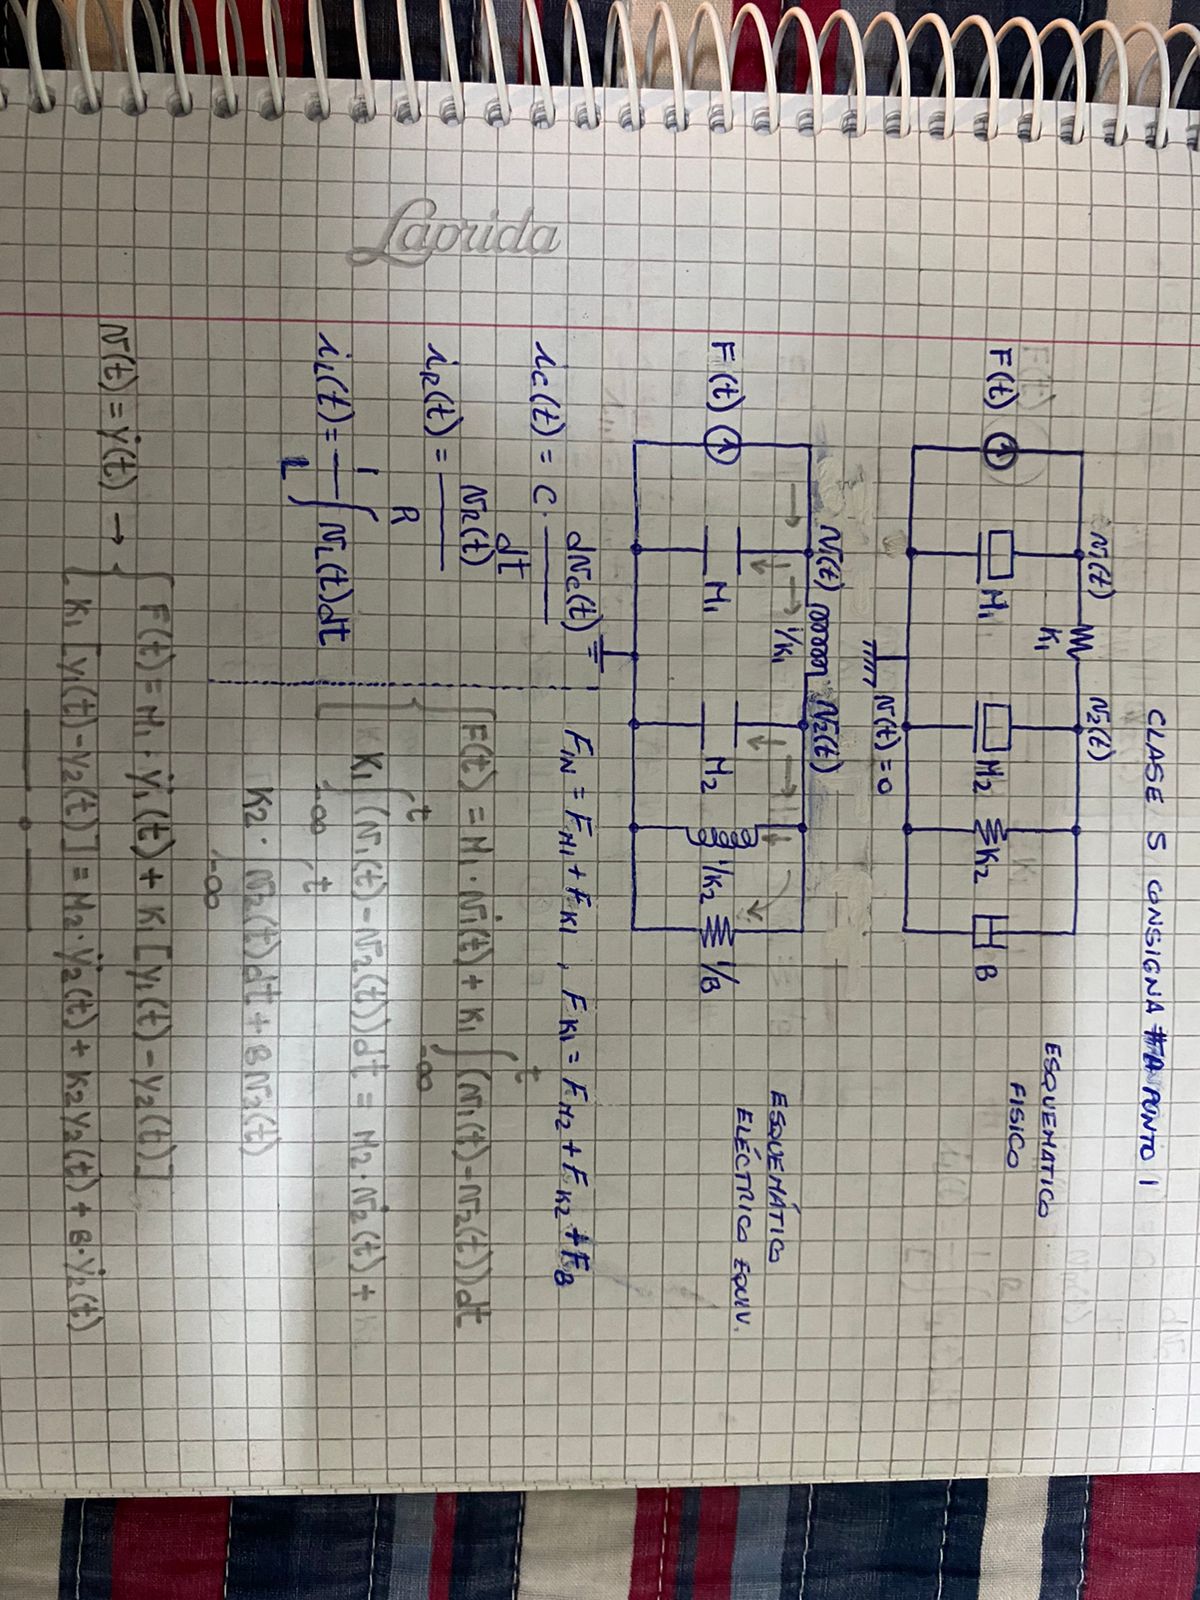 CLASE 5 CONSIGNA A PUNTO 1
v1(t) v2(t)
K1
F(t) M1 M2 K2 B
ESQUEMATICO
FISICO
v(t) = 0
v1(t) v2(t)
1/K1
F(t) M1 M2 1/K2 1/B
ESQUEMÁTICO
ELÉCTRICO EQUIV.
iC(t) = C · dvC(t)/dt
iR(t) = vR(t)/R
iL(t) = 1/L ∫ vL(t)dt
FIN = FM1 + FK1 , FK1 = FM2 + FK2 + FB
F(t) = M1 · v̇1(t) + K1 ∫_{-∞}^{t} (v1(t) - v2(t)) dt
K1 ∫_{-∞}^{t} (v1(t) - v2(t)) dt = M2 · v̇2(t) +
K2 · ∫_{-∞}^{t} v2(t) dt + B v2(t)
v(t) = ẏ(t) → { F(t) = M1 · ÿ1(t) + K1 [y1(t) - y2(t)]
K1 [y1(t) - y2(t)] = M2 · ÿ2(t) + K2 y2(t) + B · ẏ2(t)
Laprida